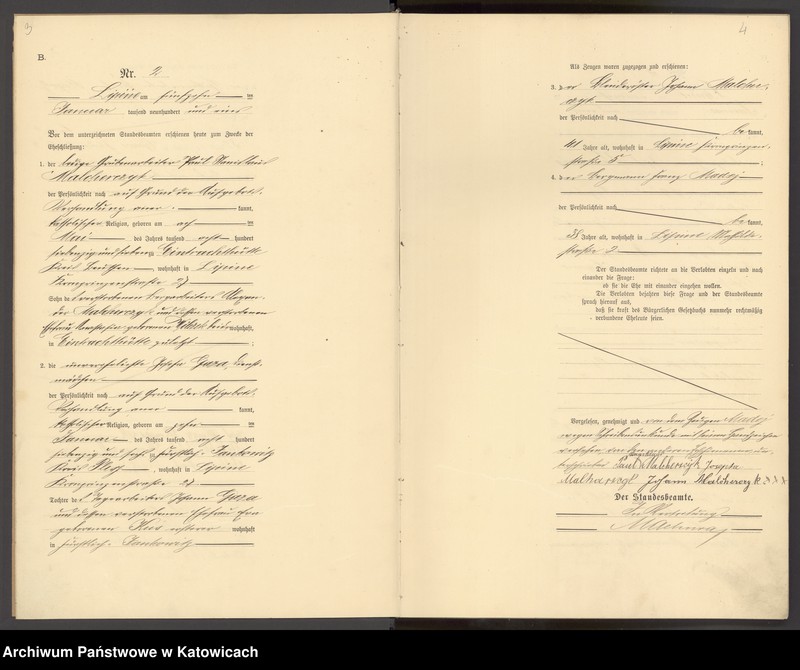 3
B.
Nr. 2
Lipine am fünfzehn ten
Januar tausend neunhundert und eins
Vor dem unterzeichneten Standesbeamten erschienen heute zum Zwecke der
Eheschließung:
1. der ledige Paul
Malcherczyk
der Persönlichkeit nach auf Grund der Aufgebots-
Verhandlung aner kannt,
katholischer Religion, geboren am
Mai des Jahres tausend acht hundert
siebenzig und sieben zu Eintrachthütte
Kreis Beuthen, wohnhaft in Lipine
Kronprinzenstraße 27
Sohn des verstorbenen
Malcherczyk und dessen verstorbenen
Ehefrau geborenen beide wohnhaft,
in Eintrachthütte zuletzt ;
2. die unverehelichte Josefa Gura, Dienst-
mädchen
der Persönlichkeit nach auf Grund der Aufgebots-
Verhandlung aner kannt,
katholischer Religion, geboren am zehn ten
Januar des Jahres tausend acht hundert
siebenzig und zu Fürstlich Jankowitz
Kreis Pleß, wohnhaft in Lipine
Kronprinzenstraße 27
Tochter des Johann Gura
und dessen verstorbenen Ehefrau Eva
geborenen wohnhaft
in Fürstlich Jankowitz
4
Als Zeugen waren zugezogen und erschienen:
3. der Johann Malcher-
czyk
der Persönlichkeit nach
be kannt,
41 Jahre alt, wohnhaft in Lipine Kronprinzen-
straße 5 ;
4. der Bergmann Franz Madej
der Persönlichkeit nach
be kannt,
38 Jahre alt, wohnhaft in Lipine
straße 2
Der Standesbeamte richtete an die Verlobten einzeln und nach
einander die Frage:
ob sie die Ehe mit einander eingehen wollen.
Die Verlobten bejahten diese Frage und der Standesbeamte
sprach hierauf aus,
daß sie kraft des Bürgerlichen Gesetzbuchs nunmehr rechtmäßig
verbundene Eheleute seien.
Vorgelesen, genehmigt und von dem Zeugen Madej
wegen Schreibensunkunde mit seinem Handzeichen
versehen, von den
Paul Malcherczyk Josefa
Malcharczyk Johann Malcherczyk XXX
Der Standesbeamte.
In Vertretung
Archiwum Państwowe w Katowicach